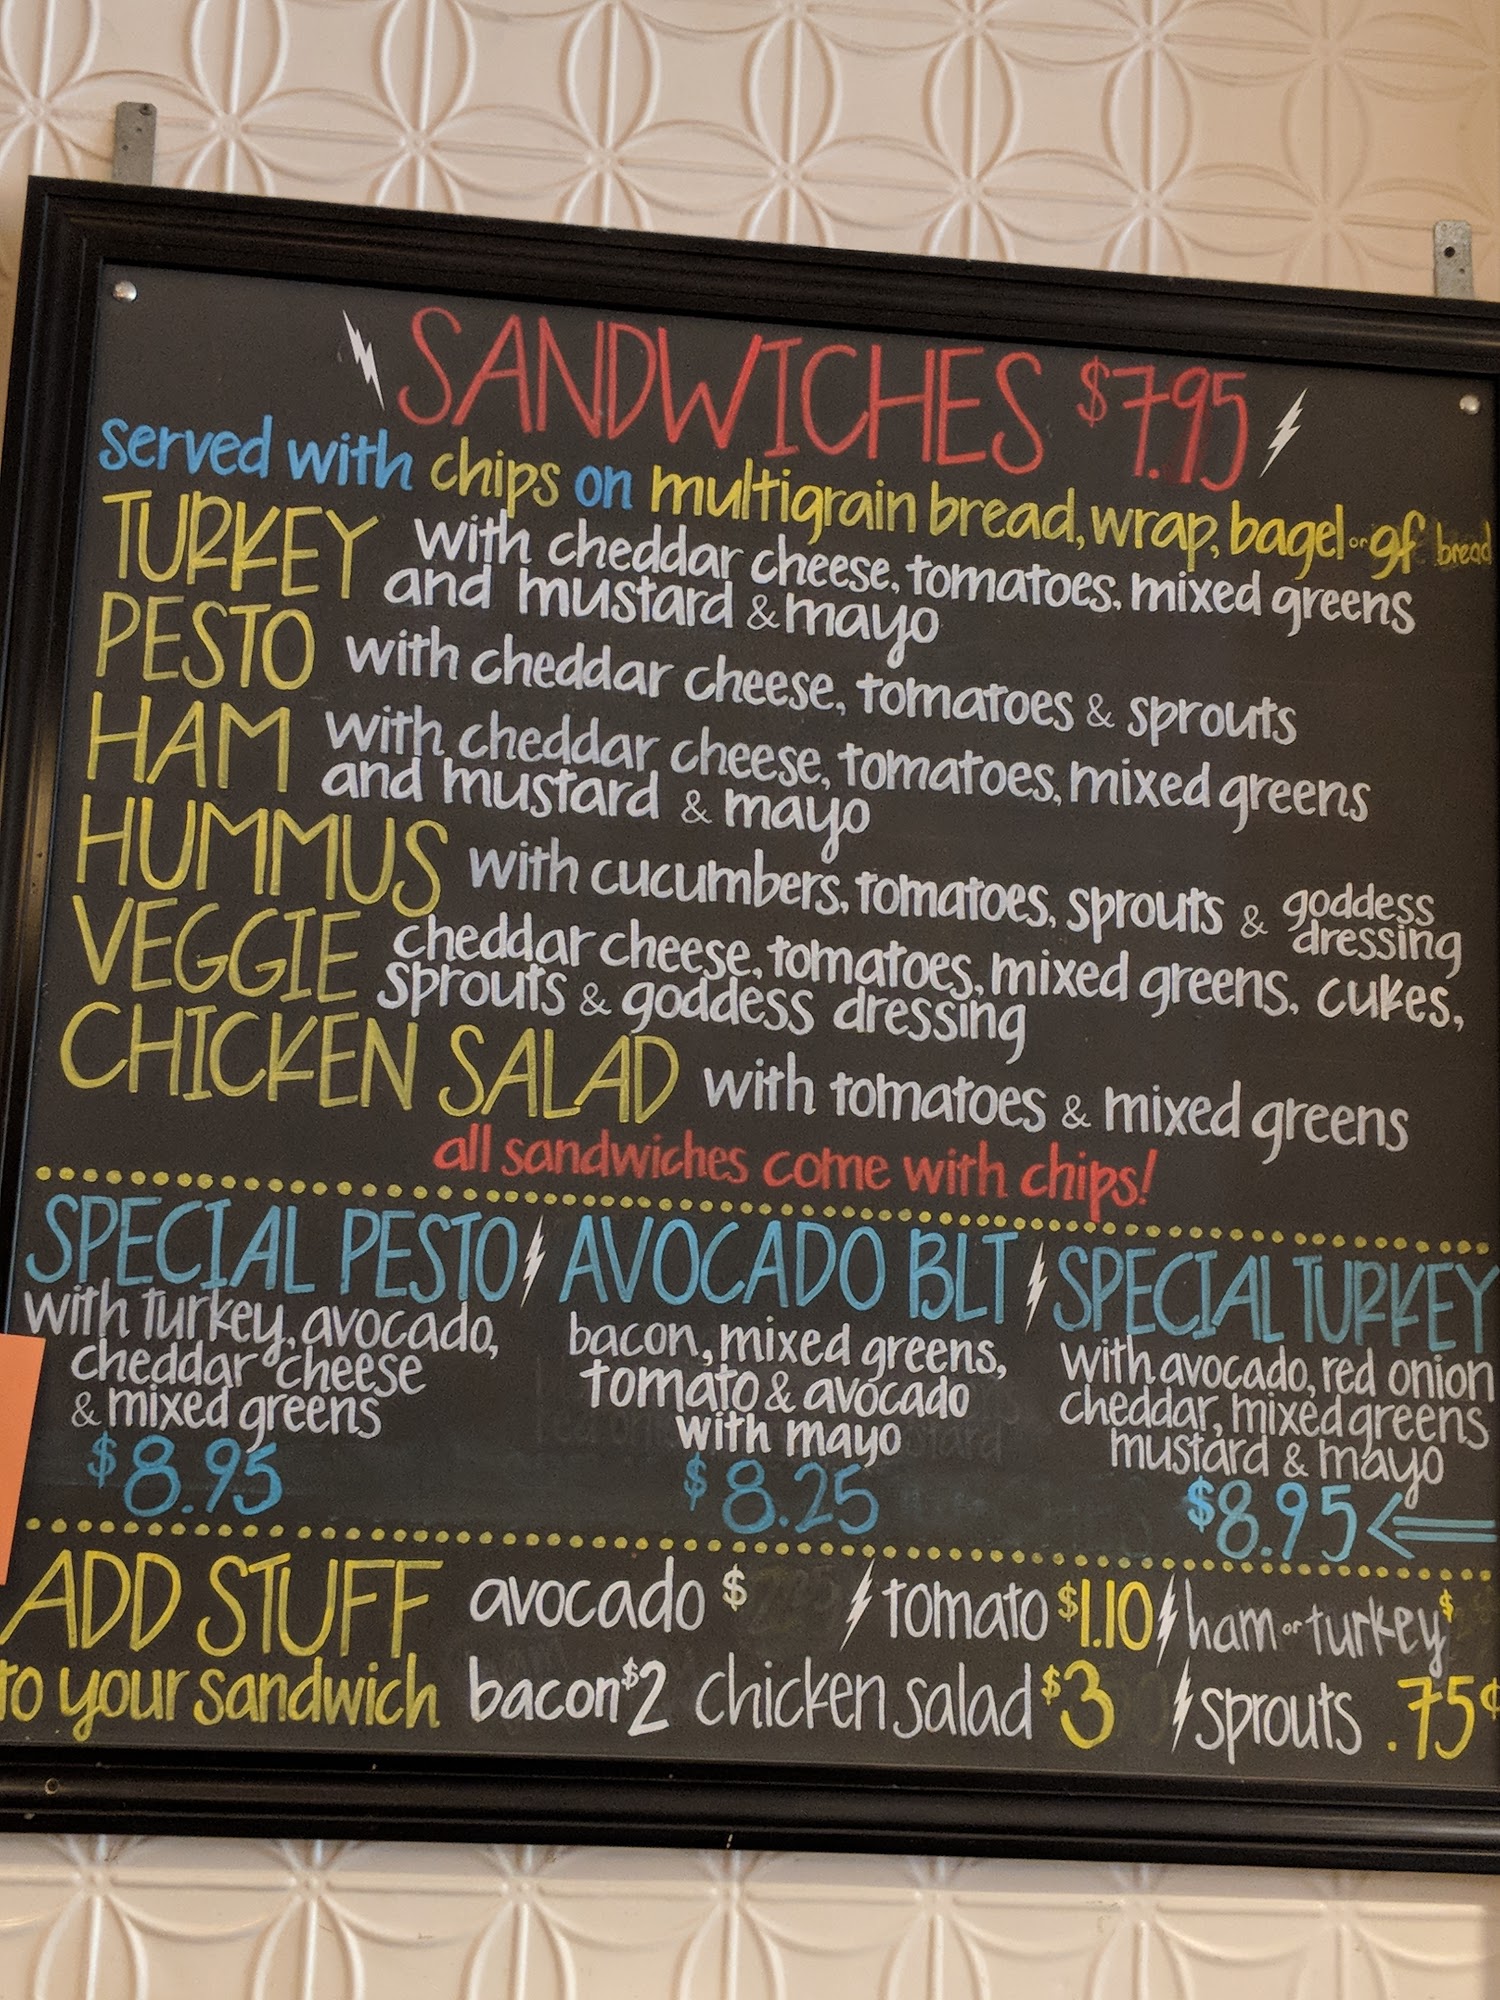 SANDWICHES $7.95
served with chips on multigrain bread, wrap, bagel or gf bread
TURKEY with cheddar cheese, tomatoes, mixed greens
and mustard & mayo
PESTO with cheddar cheese, tomatoes & sprouts
HAM with cheddar cheese, tomatoes, mixed greens
and mustard & mayo
HUMMUS with cucumbers, tomatoes, sprouts & goddess
dressing
VEGGIE cheddar cheese, tomatoes, mixed greens, cukes,
sprouts & goddess dressing
CHICKEN SALAD with tomatoes & mixed greens
all sandwiches come with chips!
SPECIAL PESTO
with turkey, avocado,
cheddar cheese
& mixed greens
$8.95
AVOCADO BLT
bacon, mixed greens,
tomato & avocado
with mayo
$8.25
SPECIAL TURKEY
with avocado, red onion
cheddar, mixed greens
mustard & mayo
$8.95
ADD STUFF avocado $ tomato $1.10 ham or turkey $
to your sandwich bacon $2 chicken salad $3 sprouts .75¢